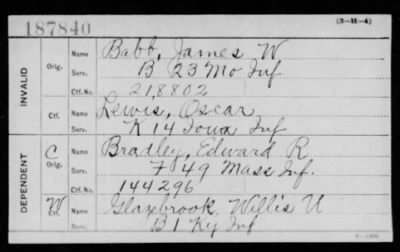 187840
(3-H-4)
INVALID
Orig. Name Babb, James W
Serv. B 23 Mo Inf
Ctf. No. 218802
Ctf. Name Lewis, Oscar
Serv. K 14 Iowa Inf
DEPENDENT
C Orig. Name Bradley, Edward R
Serv. F 49 Mass Inf.
Ctf. No. 144296
W Ctf. Name Glazbrook, Willis U
Serv. B 1 Ky Inf